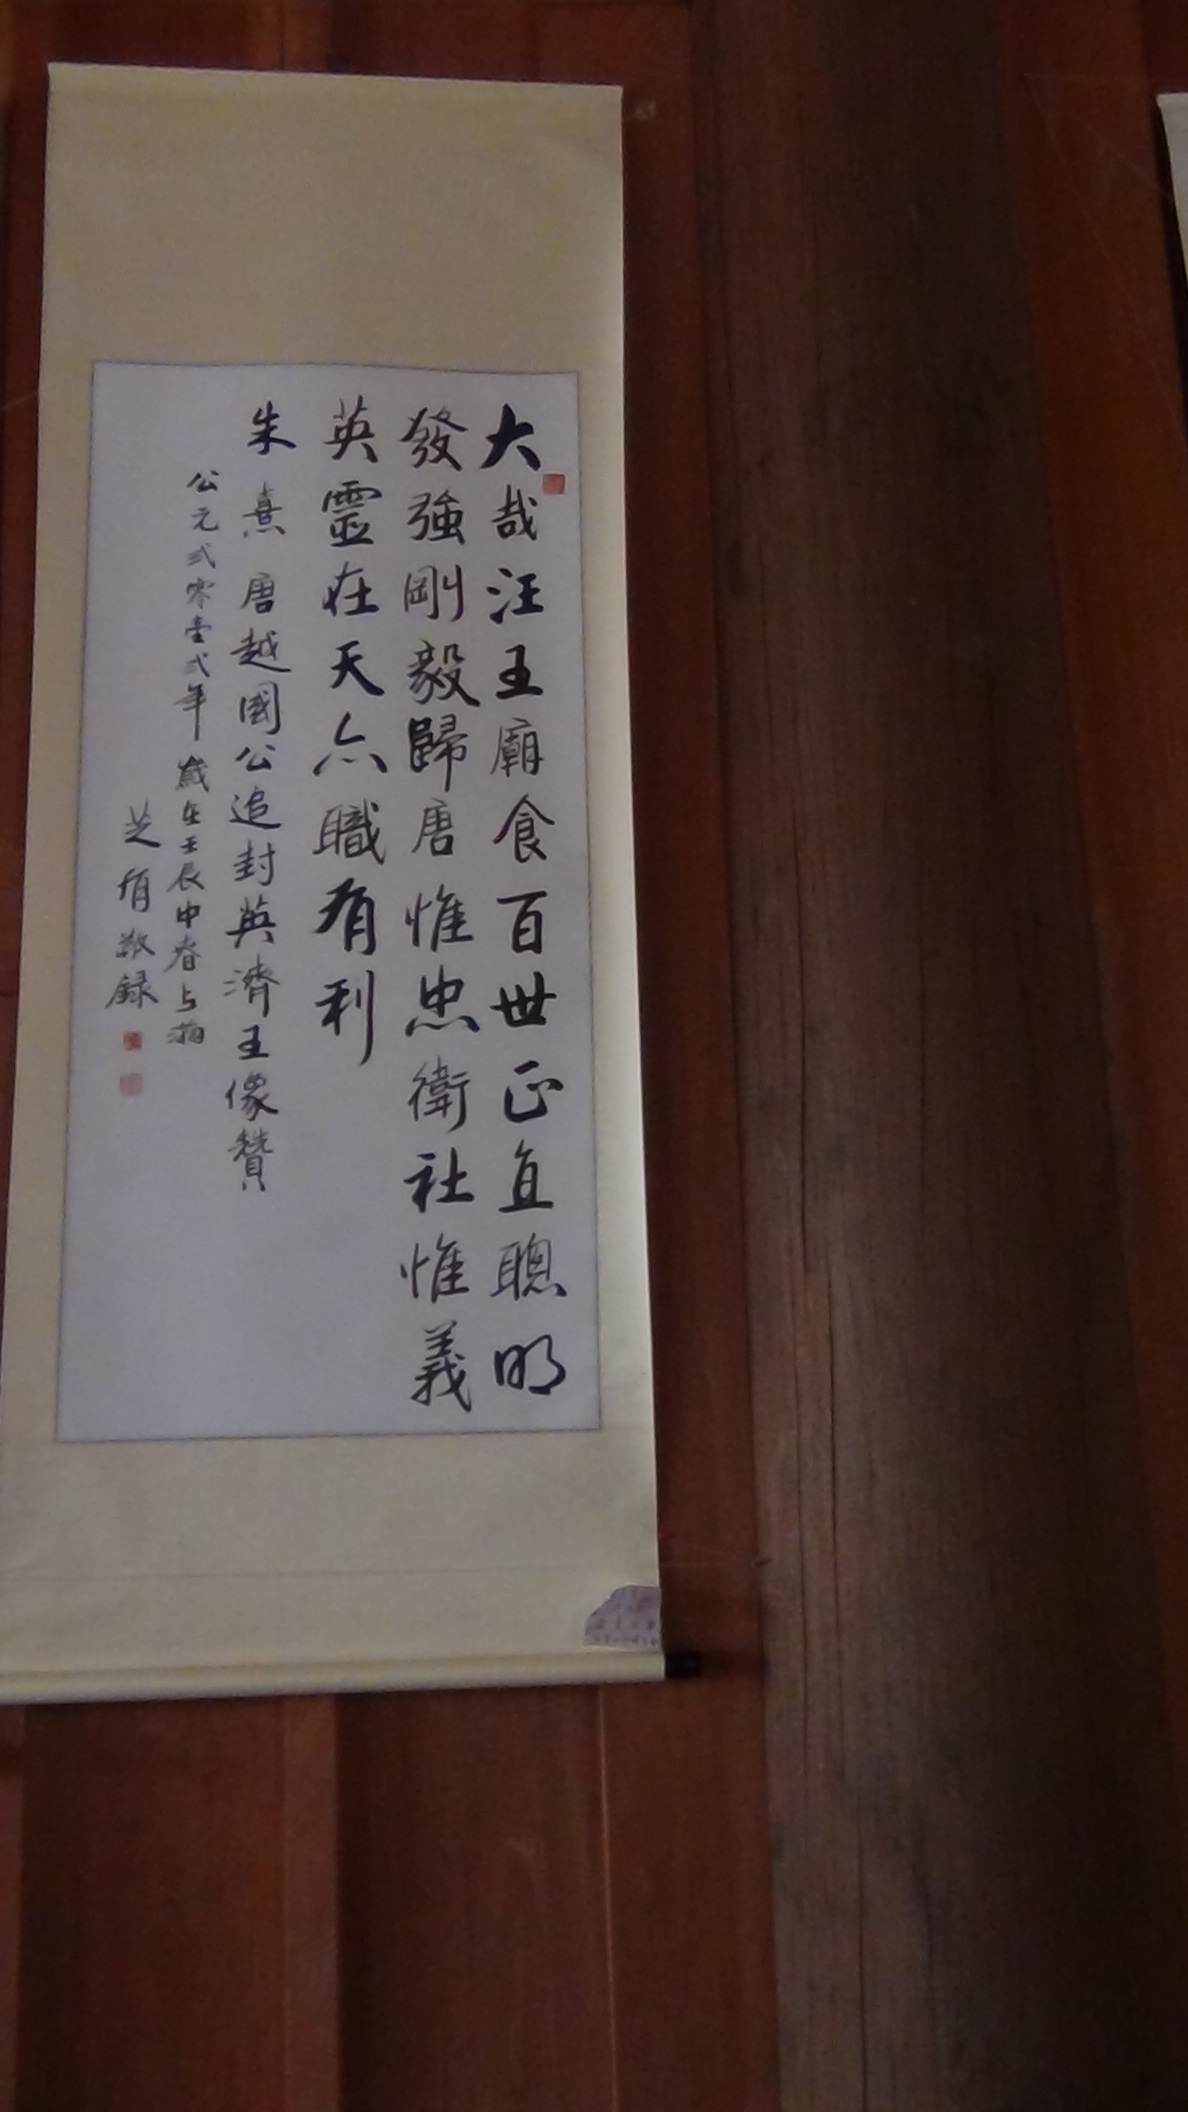 大哉汪王廟食百世正直聰明
發強剛毅歸唐惟忠衛社惟義
英靈在天六職有利
朱熹唐越國公追封英濟王像贊
公元弍零壹弍年歲在壬辰中春与瀚
芝 敬録